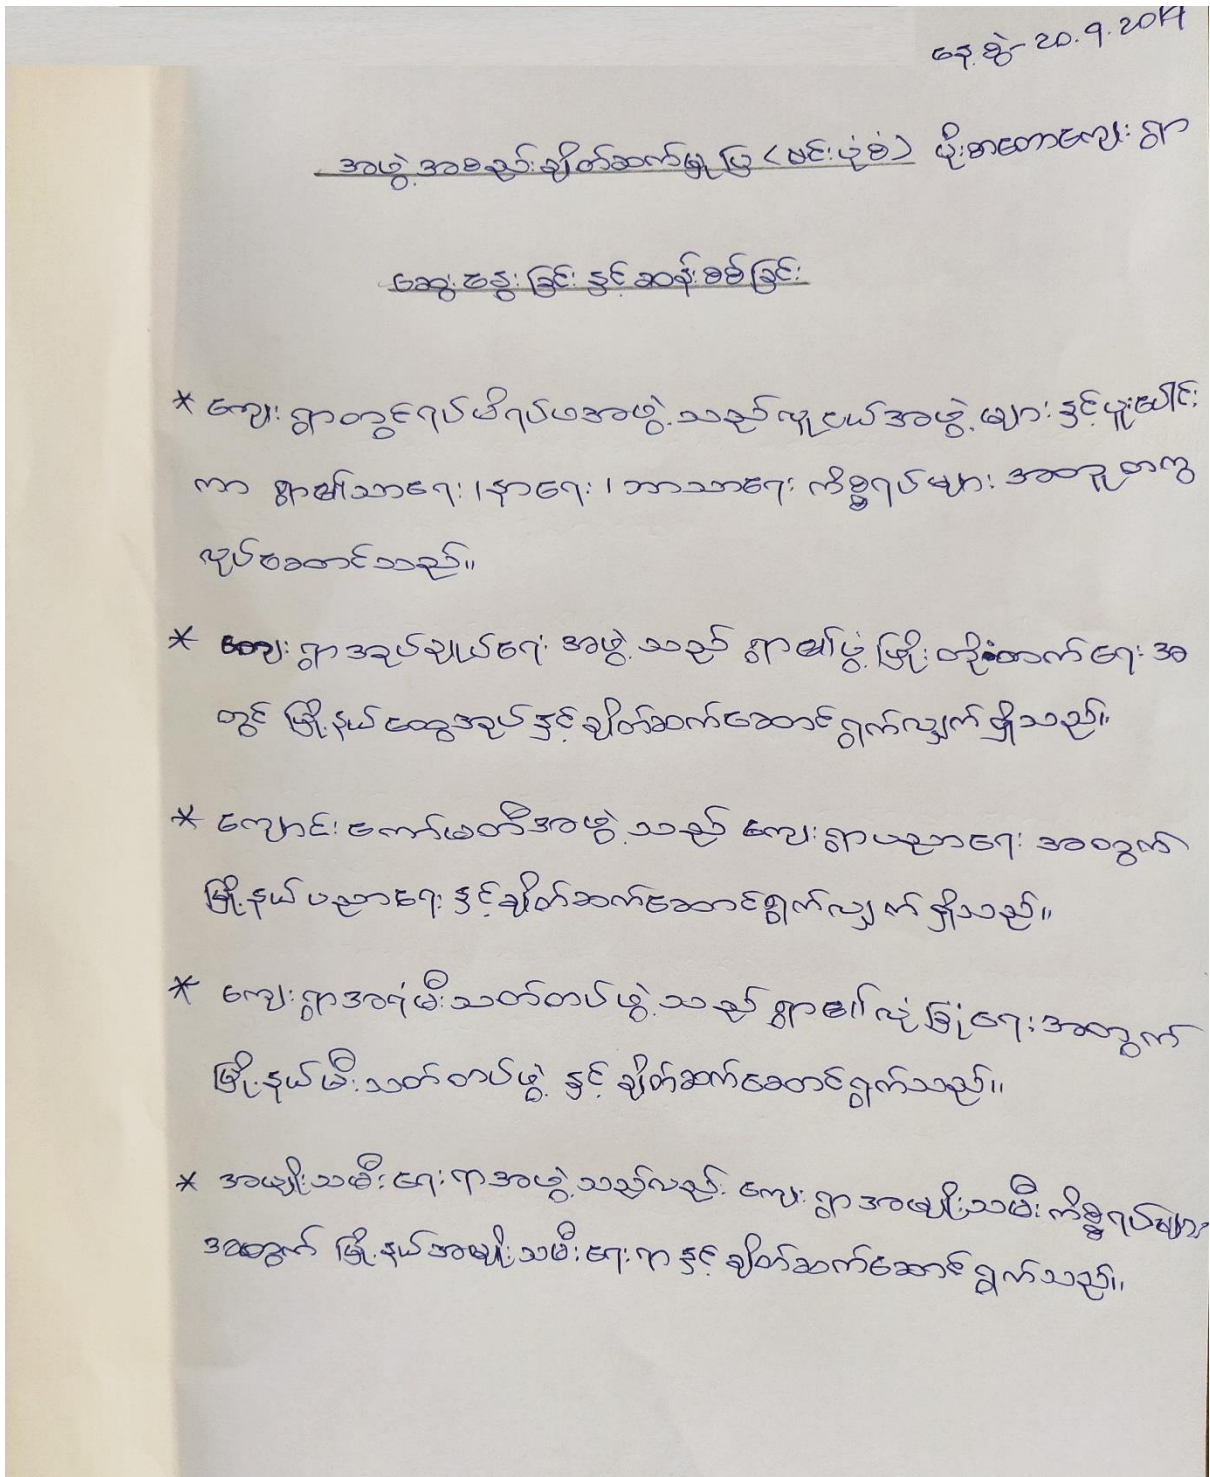 နေ့စွဲ- 20.9.2019
အဖွဲ့အစည်းချိတ်ဆက်မှုပြ (မင်းပုံစံ) ပိုးစာတောကျေးရွာ
ဆွေးနွေးခြင်းနှင့်ဆန်းစစ်ခြင်း
* ကျေးရွာတွင်ရပ်မိရပ်ဖအဖွဲ့သည်လူငယ်အဖွဲ့များနှင့်ပူးပေါင်း
ကာ ရွာ၏သာရေး၊နာရေး၊ဘာသာရေး ကိစ္စရပ်များ အတူတကွ
လုပ်ဆောင်သည်။
* ကျေးရွာအုပ်ချုပ်ရေး အဖွဲ့သည် ရွာ၏ဖွံ့ဖြိုးတိုးတက်ရေး အ
တွင် မြို့နယ်ထွေအုပ်နှင့်ချိတ်ဆက်ဆောင်ရွက်လျှက်ရှိသည်။
* ကျောင်းကော်မတီအဖွဲ့သည် ကျေးရွာပညာရေး အတွက်
မြို့နယ်ပညာရေးနှင့်ချိတ်ဆက်ဆောင်ရွက်လျှက်ရှိသည်။
* ကျေးရွာအရံမီးသတ်တပ်ဖွဲ့သည် ရွာ၏လုံခြုံရေးအတွက်
မြို့နယ်မီးသတ်တပ်ဖွဲ့ နှင့် ချိတ်ဆက်ဆောင်ရွက်သည်။
* အမျိုးသမီးရေးရာအဖွဲ့သည်လည်း ကျေးရွာအမျိုးသမီးကိစ္စရပ်များ
အတွက် မြို့နယ်အမျိုးသမီးရေးရာနှင့်ချိတ်ဆက်ဆောင်ရွက်သည်။